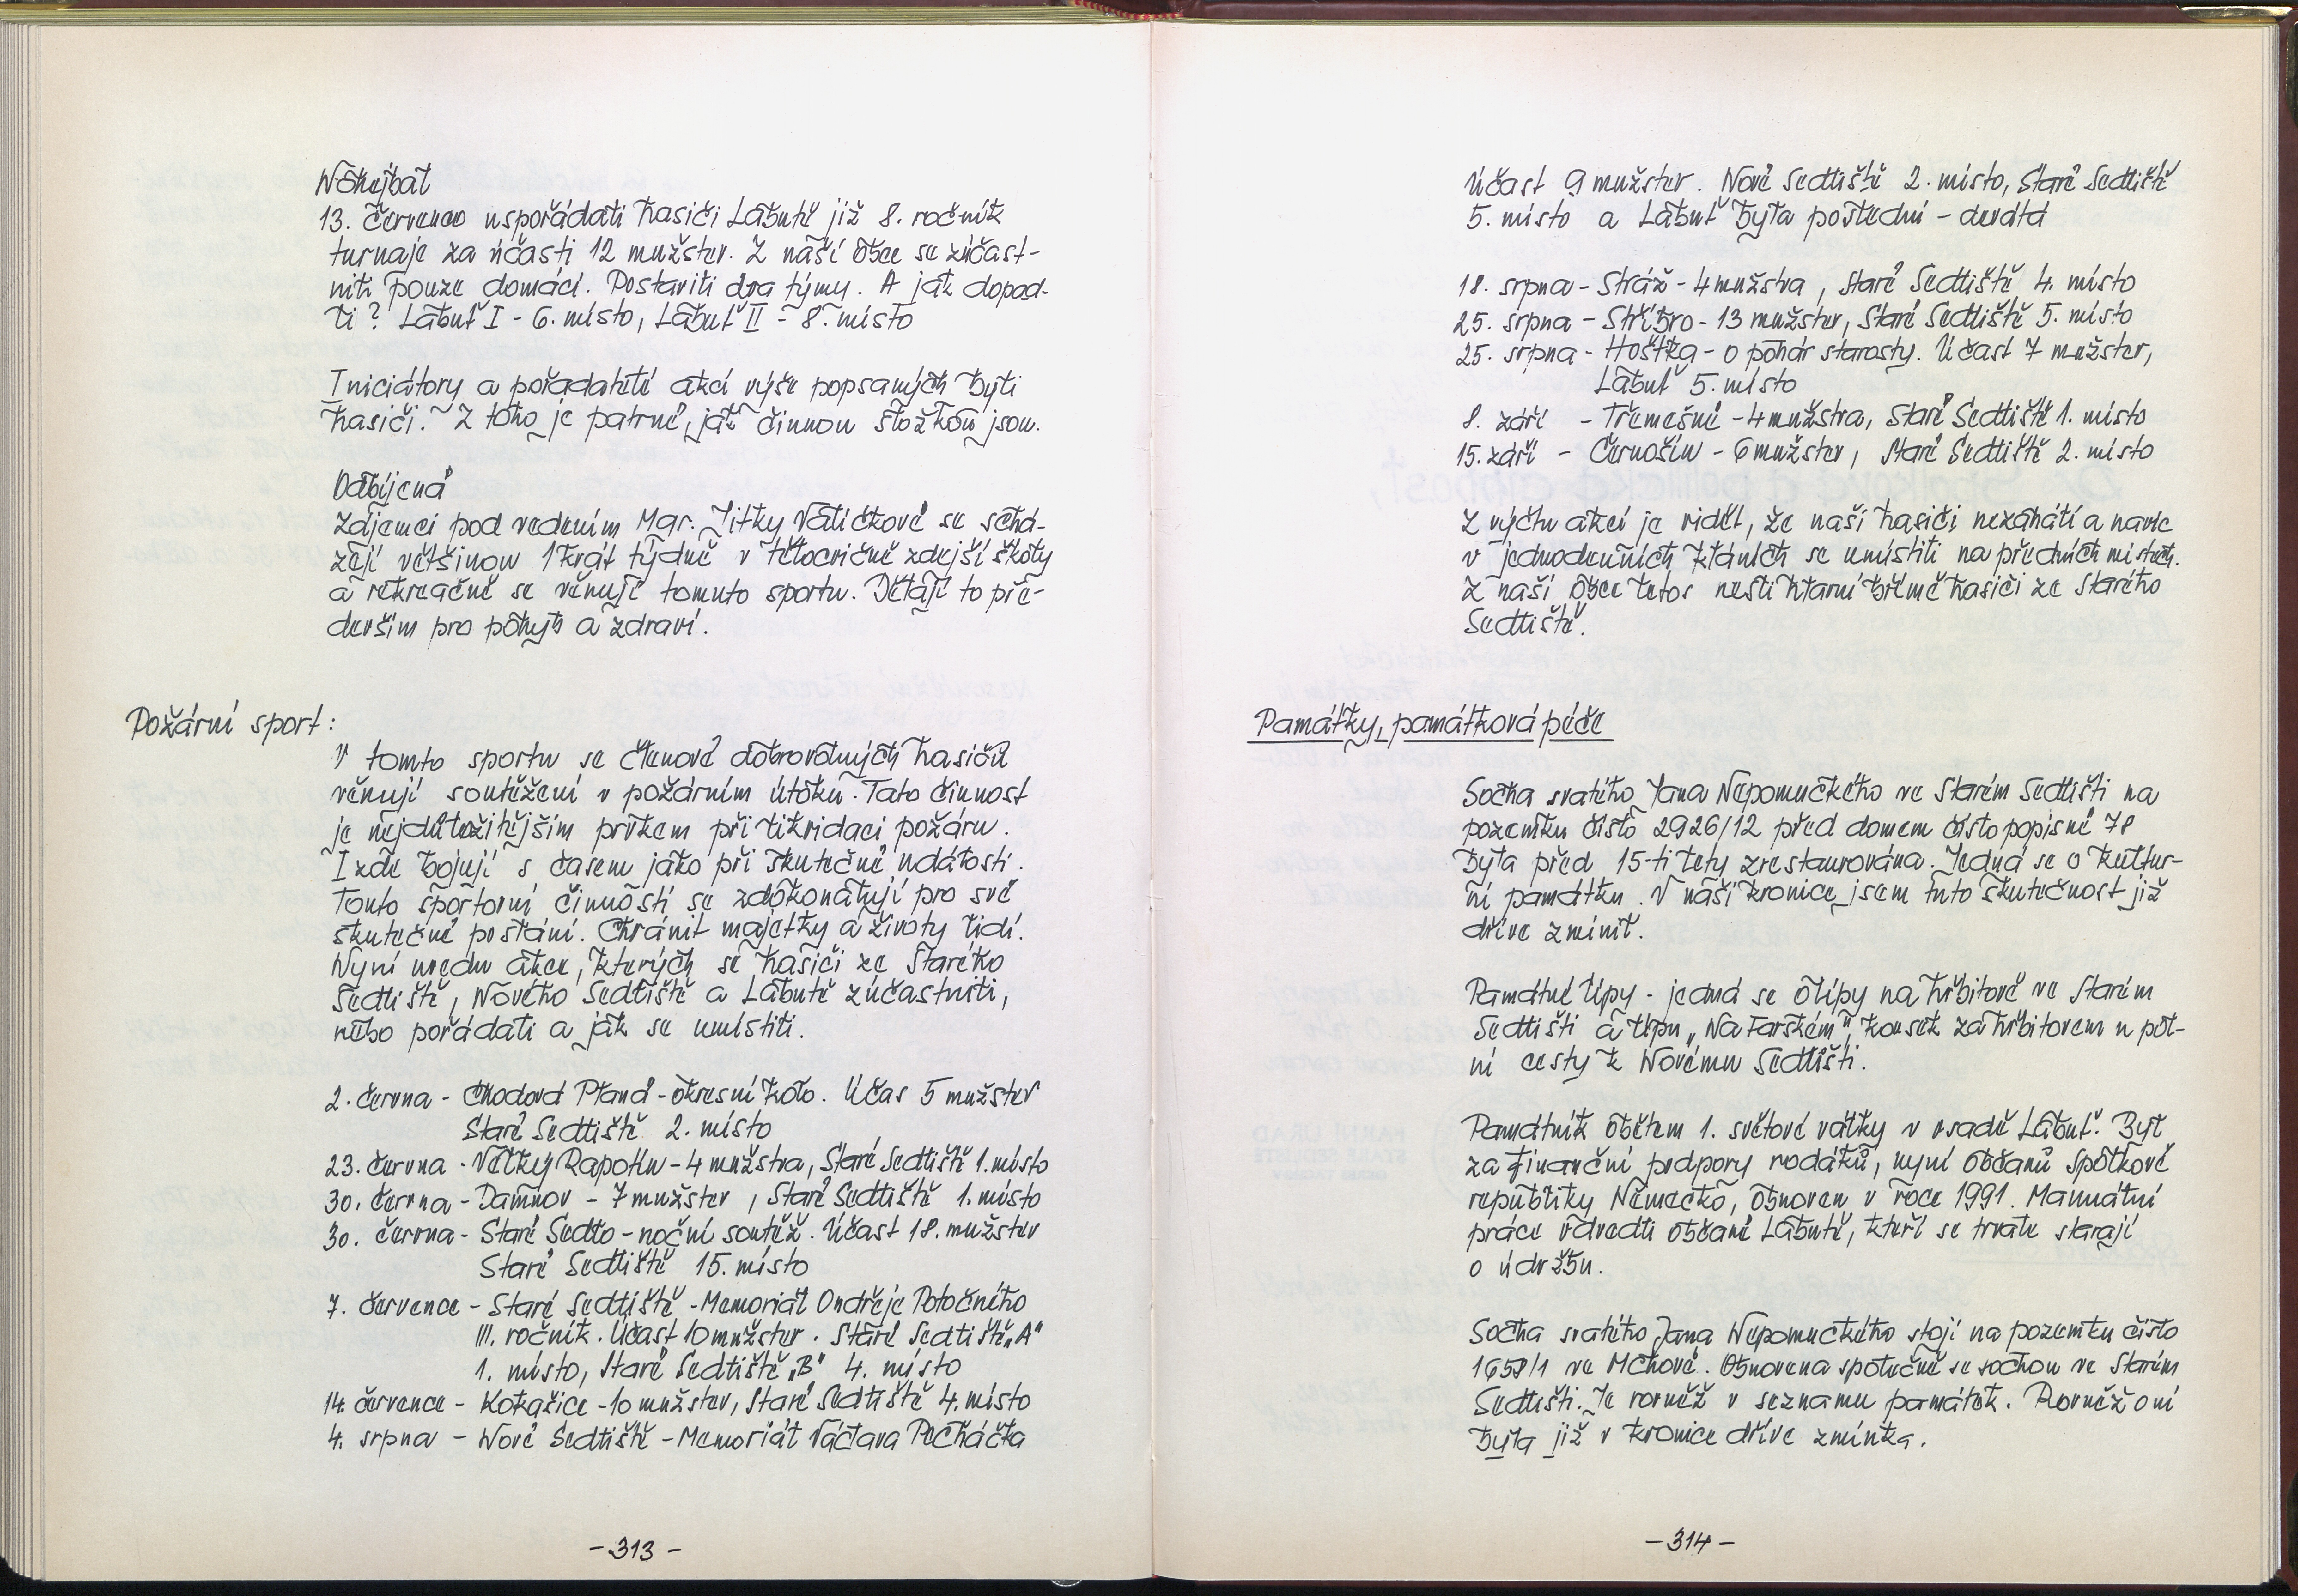 Nohejbal
13. července uspořádali hasiči Labutě již 8. ročník
turnaje za účasti 12 mužstev. Z naší obce se zúčast-
nili pouze domácí. Postavili dva týmy. A jak dopad-
li? Labuť I - 6. místo, Labuť II - 8. místo
Iniciátory a pořadateli akcí výše popsaných byli
hasiči. Z toho je patrné, jak činnou složkou jsou.
Odbíjená
Zájemci pod vedením Mgr. Jitky Valíčkové se schá-
zejí většinou 1krát týdně v tělocvičně zdejší školy
a rekreačně se věnují tomuto sportu. Dělají to pře-
devším pro pohyb a zdraví.
Požární sport:
V tomto sportu se členové dobrovolných hasičů
věnují soutěžení v požárním útoku. Tato činnost
je nejdůležitějším prvkem při likvidaci požáru.
I zde bojují s časem jako při skutečné události.
Touto sportovní činností se zdokonalují pro své
skutečné poslání. Chránit majetky a životy lidí.
Nyní uvedu akce, kterých se hasiči ze Starého
Sedliště, Nového Sedliště a Labutě zúčastnili,
nebo pořádali a jak se umístili.
2. června - Chodová Planá - okresní kolo. Účas 5 mužstev
Staré Sedliště 2. místo
23. června - Velký Rapotín - 4 mužstva, Staré Sedliště 1. místo
30. června - Damnov - 7 mužstev, Staré Sedliště 1. místo
30. června - Staré Sedlo - noční soutěž. Účast 18. mužstev
Staré Sedliště 15. místo
7. července - Staré Sedliště - Memoriál Ondřeje Potočného
III. ročník. Účast 10 mužstev. Staré Sedliště „A"
1. místo, Staré Sedliště „B" 4. místo
14. července - Kokašice - 10 mužstev, Staré Sedliště 4. místo
4. srpna - Nové Sedliště - Memoriál Václava Pecháčka
-313-
Účast 9 mužstev. Nové Sedliště 2. místo, Staré Sedliště
5. místo a Labuť byla poslední - devátá
18. srpna - Stráž - 4 mužstva, Staré Sedliště 4. místo
25. srpna - Stříbro - 13 mužstev, Staré Sedliště 5. místo
25. srpna - Hošťka - o pohár starosty. Účast 7 mužstev,
Labuť 5. místo
8. září - Třemešné - 4 mužstva, Staré Sedliště 1. místo
15. září - Černošín - 6 mužstev, Staré Sedliště 2. místo
Z výčtu akcí je vidět, že naši hasiči nezahálí a navíc
v jednodenních kláních se umístili na předních místech.
Z naší obce letos nesli hlavní břímě hasiči ze Starého
Sedliště.
Památky, památková péče
Socha svatého Jana Nepomuckého ve Starém Sedlišti na
pozemku číslo 2926/12 před domem číslo popisné 78
byla před 15-ti lety zrestaurována. Jedná se o kultur-
ní památku. V naší kronice jsem tuto skutečnost již
dříve zmínil.
Památné lípy - jedná se o lípy na hřbitově ve Starém
Sedlišti a lípu „Na Farském", kousek za hřbitovem u pol-
ní cesty k Novému Sedlišti.
Památník obětem 1. světové války v osadě Labuť. Byl
za finanční podpory rodáků, nyní občanů Spolkové
republiky Německo, obnoven v roce 1991. Manuální
práce odvedli občané Labutě, kteří se trvale starají
o údržbu.
Socha svatého Jana Nepomuckého stojí na pozemku číslo
1658/1 ve Mchově. Obnovena společně se sochou ve Starém
Sedlišti. Je rovněž v seznamu památek. Rovněž o ní
byla již v kronice dříve zmínka.
-314-